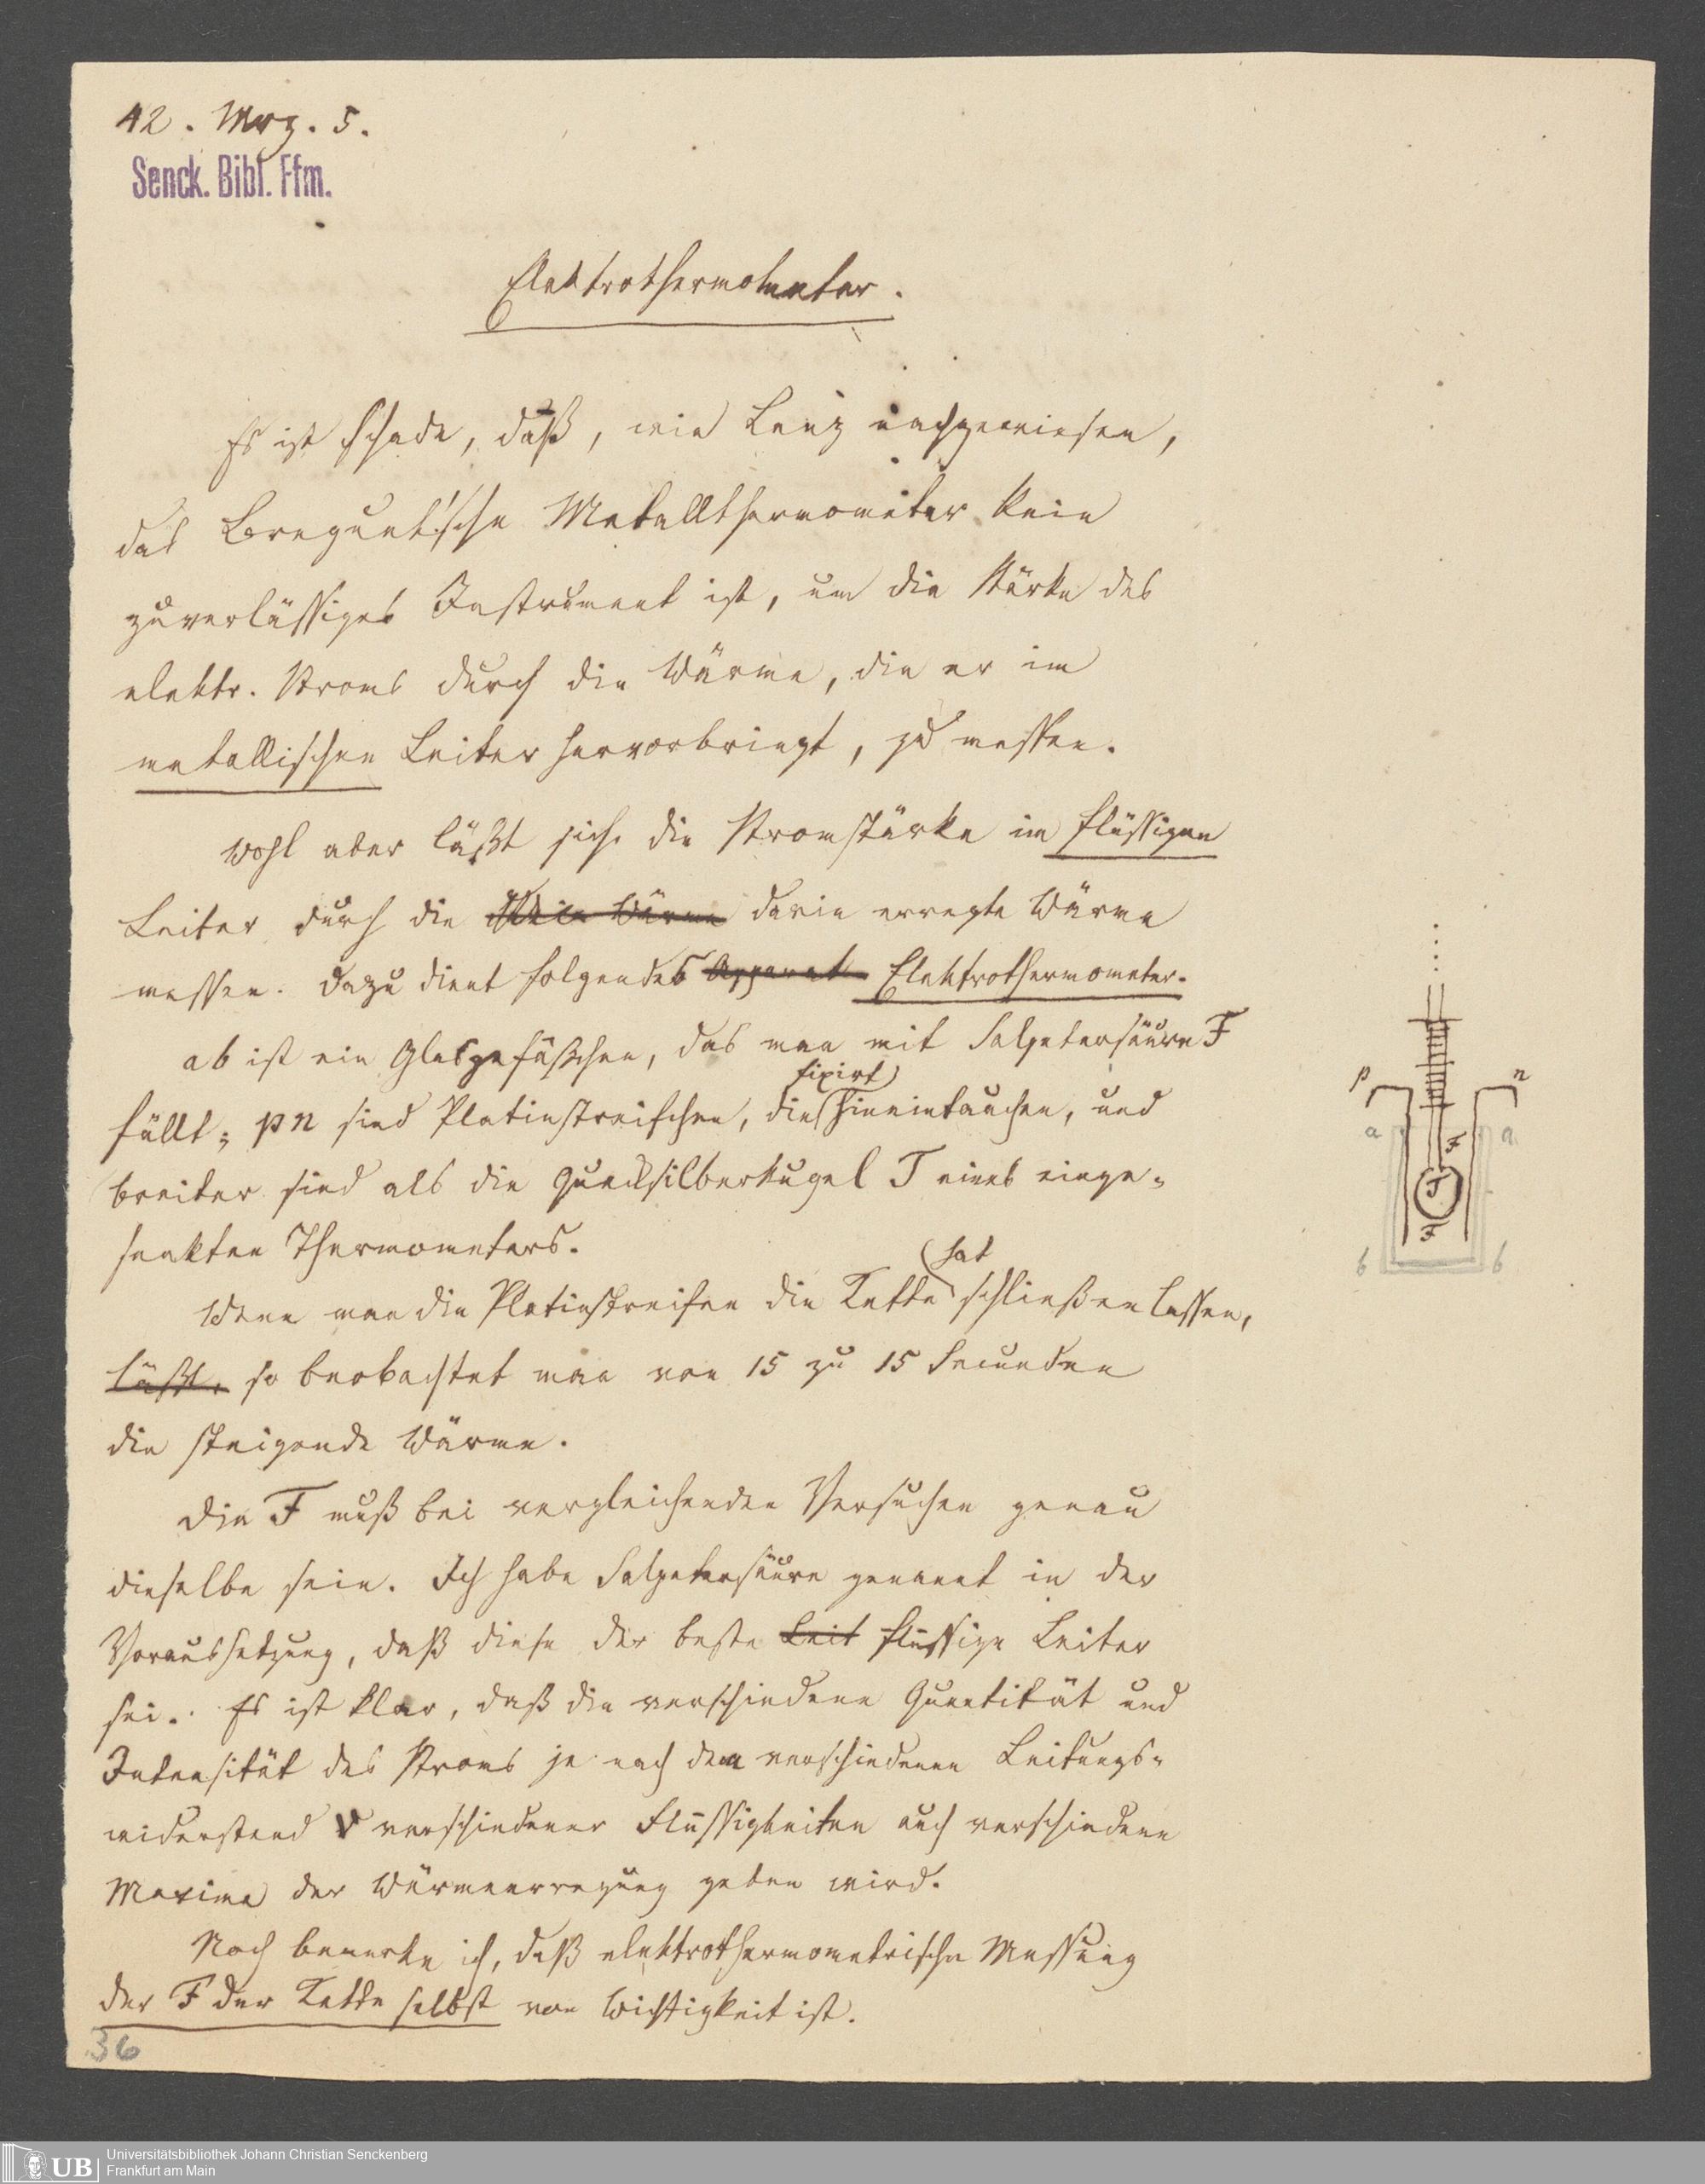 42. Mrz. 5.
Senck. Bibl. Ffm.
Elektrothermometer.
Es ist Schade, daß, wie Lenz nachgewiesen,
das Breguet'sche Metallthermometer kein
zuverlässiges Instrument ist, um die Stärke des
elektr. Stroms durch die Wärme, die er im
metallischen Leiter hervorbringt, zu messen.
Wohl aber läßt sich die Stromstärke im flüssigen
Leiter durch die Wärme darin erregte Wärme
messen. Dazu dient folgendes Apparat Elektrothermometer.
ab ist ein Glasgefäßchen, das man mit Salpetersäure F
fixirt
füllt; pn sind Platinstreifchen, die hineintauchen, und
breiter sind als die Quecksilberkugel T eines einge-
senkten Thermometers.
hat
Wenn man die Platinstreifen die Kette schließen lassen,
läßt, so beobachtet man von 15 zu 15 Secunden
die steigende Wärme.
Die F muß bei vergleichenden Versuchen genau
dieselbe sein. Ich habe Salpetersäure genannt in der
Voraussetzung, daß diese der beste Leit flüssige Leiter
sei. Es ist klar, daß die verschiedene Quantität und
Intensität des Stroms je nach dem verschiedenen Leitungs-
widerstand verschiedener Flüssigkeiten auch verschiedene
Maxima der Wärmeerregung geben wird.
Noch bemerke ich, daß elektrothermometrische Messung
der F der Kette selbst von Wichtigkeit ist.
36
p n
a a
F
T
F
b b
UB
Universitätsbibliothek Johann Christian Senckenberg
Frankfurt am Main